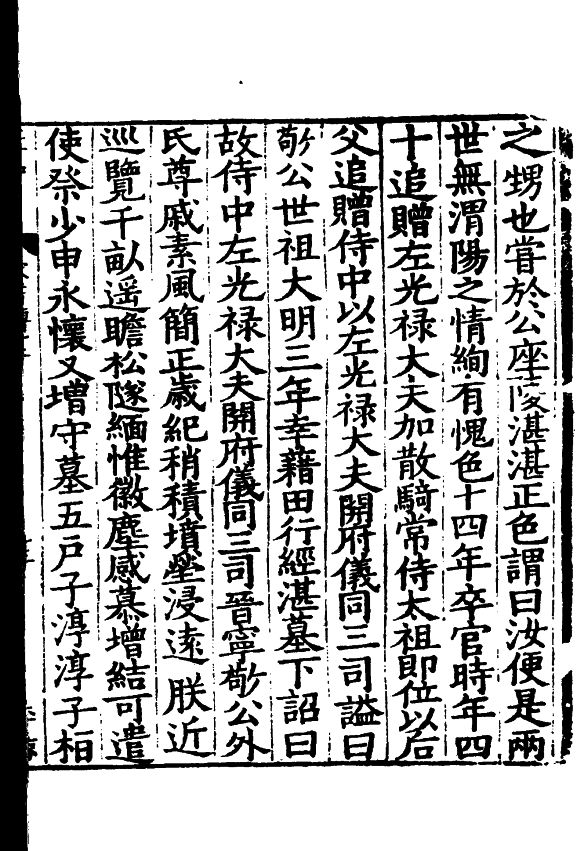 之甥也嘗於公座陵湛湛正色謂曰汝便是兩
世無渭陽之情絢有愧色十四年卒官時年四
十追贈左光祿大夫加散騎常侍太祖即位以后
父追贈侍中以左光祿大夫開府儀同三司謚曰
敬公世祖大明三年幸藉田行經湛墓下詔曰
故侍中左光祿大夫開府儀同三司晉寧敬公外
氏尊戚素風簡正歲紀稍積墳塋浸遠朕近
巡覽千畝遥瞻松隧緬惟徽塵感慕增結可遣
使祭少申永懷又增守墓五戶子淳淳子相